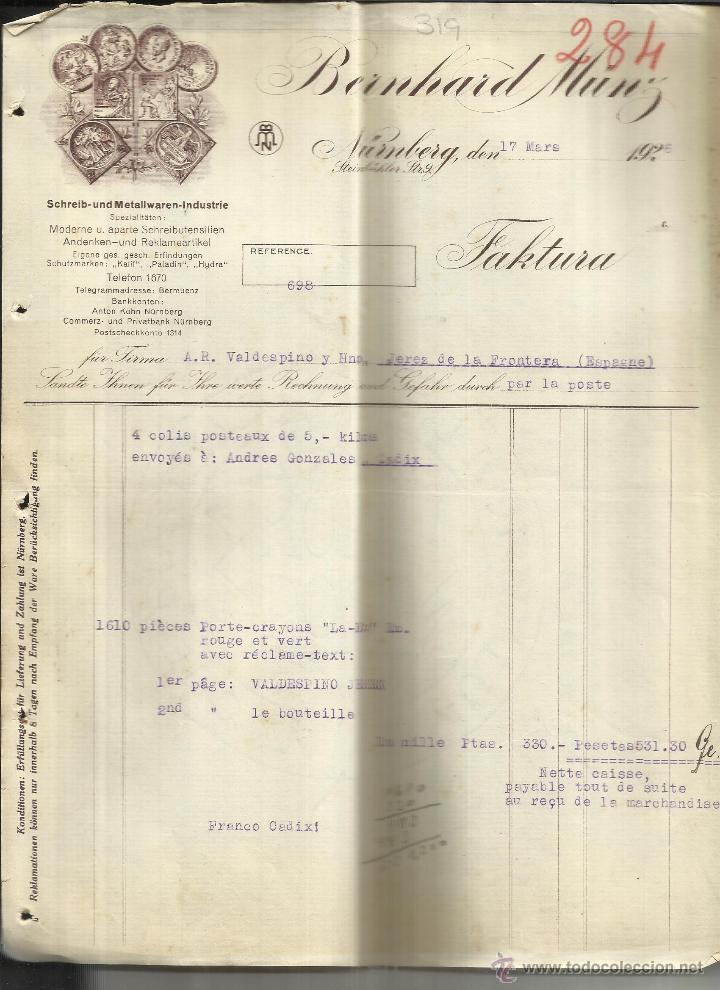 319
284
Bernhard Münz
Nürnberg, den 17 Mars 1926
Steinbühler Str. 9.
Schreib-und Metallwaren-Industrie
Spezialitäten:
Moderne u. aparte Schreibutensilien
Andenken-und Reklameartikel
Eigene ges. gesch. Erfindungen
Schutzmarken: „Kalif", „Paladin", „Hydra"
Telefon 1670
Telegrammadresse: Bermuenz
Bankkonten:
Anton Kohn Nürnberg
Commerz- und Privatbank Nürnberg
Postscheckkonto 1314
REFERENCE.
698
Faktura
für Firma A.R. Valdespino y Hno. Jerez de la Frontera (Espagne)
Sandte Ihnen für Ihre werte Rechnung und Gefahr durch par la poste
4 colis posteaux de 5,- kilos
envoyés à: Andres Gonzales, Cadix
1610 pièces Porte-crayons "La-
rouge et vert
avec réclame-text:
1er pâge: VALDESPINO JEREZ
2nd " le bouteille
Le mille Ptas. 330.- Pesetas531.30
Nette caisse,
payable tout de suite
au reçu de la marchandise
Franco Cadix!
Konditionen: Erfüllungsort für Lieferung und Zahlung ist Nürnberg.
Reklamationen können nur innerhalb 8 Tagen nach Empfang der Ware Berücksichtigung finden.
www.todocoleccion.net